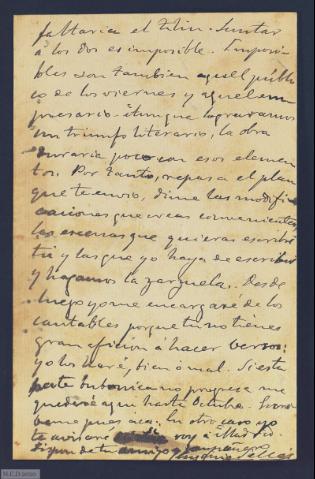 faltaria el Tilin. Juntar
á los dos es imposible. Imposi-
bles son tambien aquel públi-
co de los viernes y aquel em-
presario. Aunque lograramos
un triunfo literario, la obra
duraria poco con esos elemen-
tos. Por tanto, repasa el plan
que te envio, dime las modifi-
caciones que creas convenientes,
las escenas que quieras escribir
tú y las que yo haya de escribir
y hagamos la zarzuela. Desde
luego yo me encargaré de los
cantables porque tu no tienes
gran aficion á hacer versos:
yo los haré, bien ó mal. Si esta
parte no progresa me
quedaré aqui hasta
pues acá. En otro caso yo
te avisaré voy á Madrid
tu amigo y compañero
Eugenio Sellés